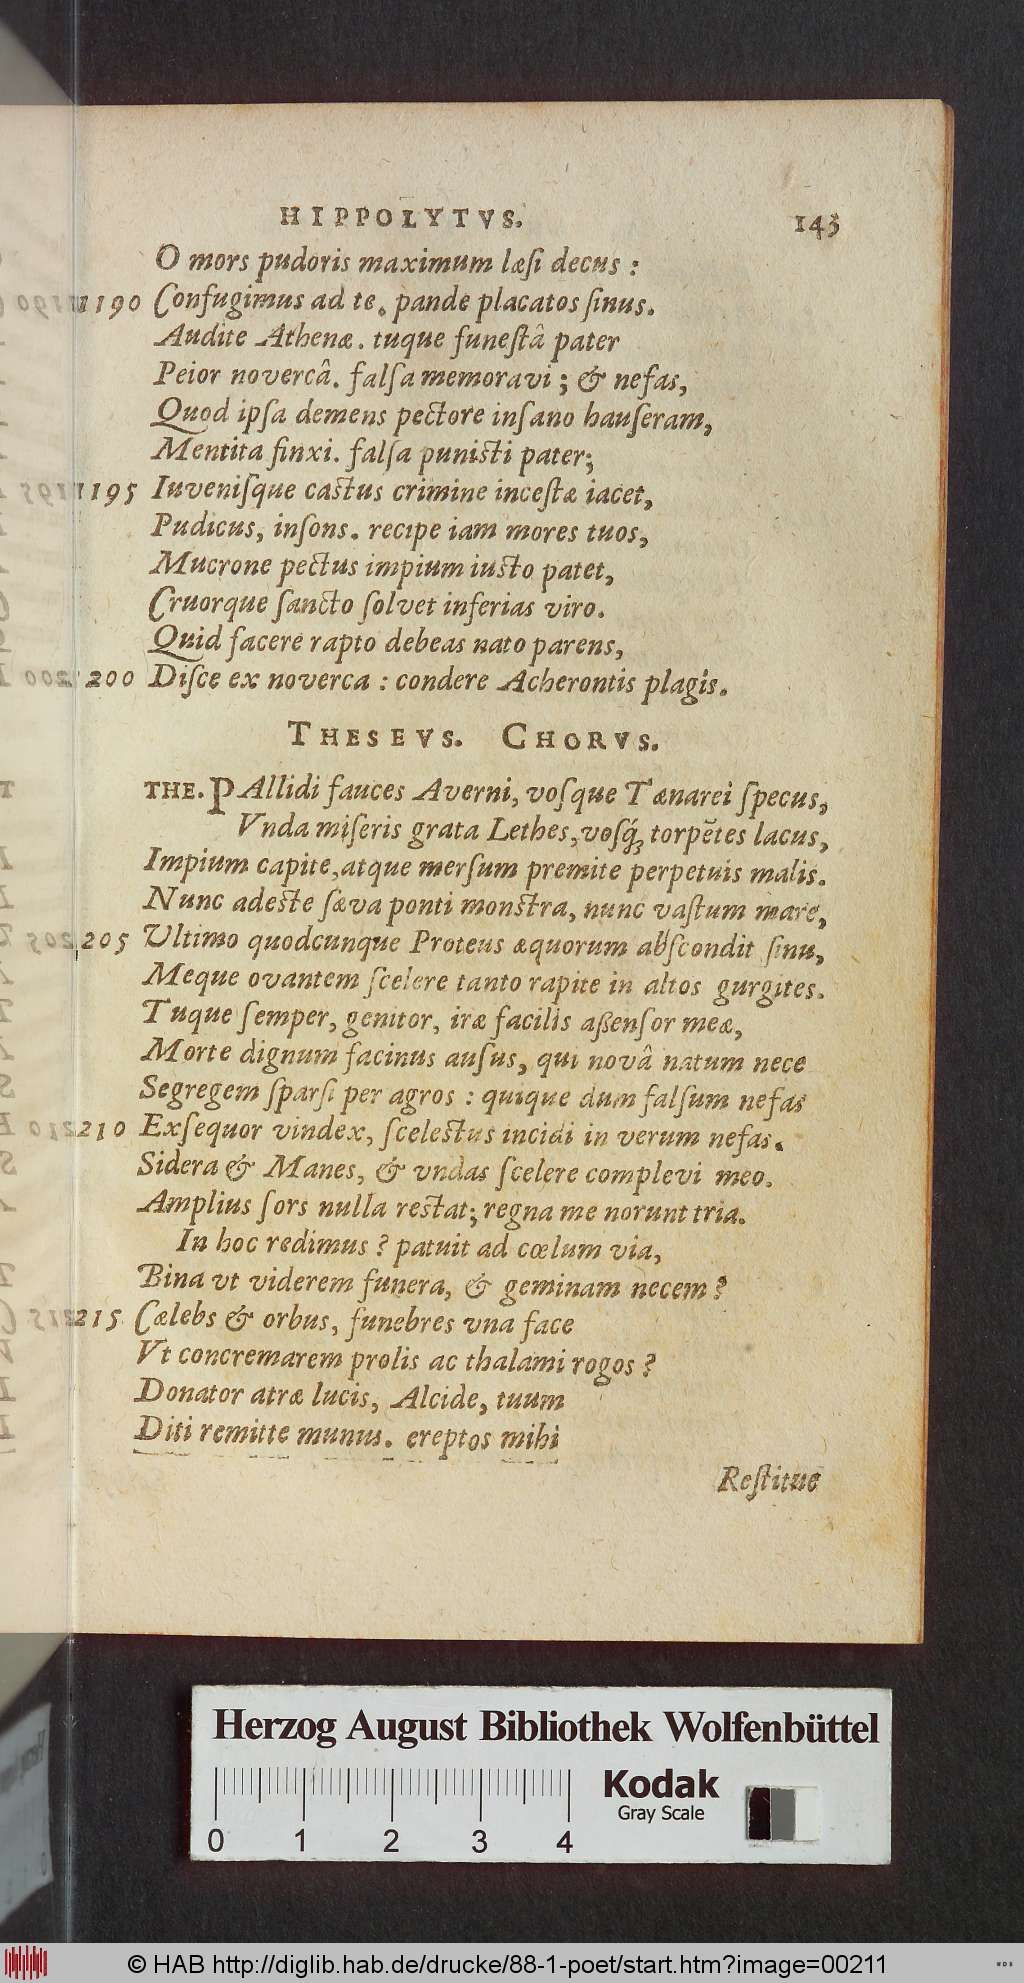 HIPPOLYTVS. 143
O mors pudoris maximum læſi decus :
1190 Confugimus ad te. pande placatos ſinus.
Audite Athenæ. tuque funeſtâ pater
Peior novercâ. falſa memoravi ; & nefas,
Quod ipſa demens pectore inſano hauſeram,
Mentita finxi. falſa punisti pater;
1195 Iuveniſque castus crimine inceſtæ iacet,
Pudicus, inſons. recipe iam mores tuos,
Mucrone pectus impium iusto patet,
Cruorque ſancto ſolvet inferias viro.
Quid facere rapto debeas nato parens,
1200 Diſce ex noverca : condere Acherontis plagis.
THESEVS. CHORVS.
THE. PAllidi fauces Averni, voſque Tænarei ſpecus,
Vnda miſeris grata Lethes, voſq́; torpẽtes lacus,
Impium capite, atque merſum premite perpetuis malis.
Nunc adeste ſæva ponti monstra, nunc vaſtum mare,
205 Ultimo quodcunque Proteus æquorum abſcondit ſinu,
Meque ovantem ſcelere tanto rapite in altos gurgites.
Tuque ſemper, genitor, iræ facilis aßenſor meæ,
Morte dignum facinus auſus, qui novâ natum nece
Segregem ſparſi per agros : quique dum falſum nefas
210 Exſequor vindex, ſcelestus incidi in verum nefas.
Sidera & Manes, & vndas ſcelere complevi meo.
Amplius ſors nulla restat; regna me norunt tria.
In hoc redimus ? patuit ad cœlum via,
Bina vt viderem funera, & geminam necem ?
215 Cælebs & orbus, funebres vna face
Vt concremarem prolis ac thalami rogos ?
Donator atræ lucis, Alcide, tuum
Diti remitte munus. ereptos mihi
Reſtitue
Herzog August Bibliothek Wolfenbüttel
Kodak
Gray Scale
0 1 2 3 4
© HAB http://diglib.hab.de/drucke/88-1-poet/start.htm?image=00211